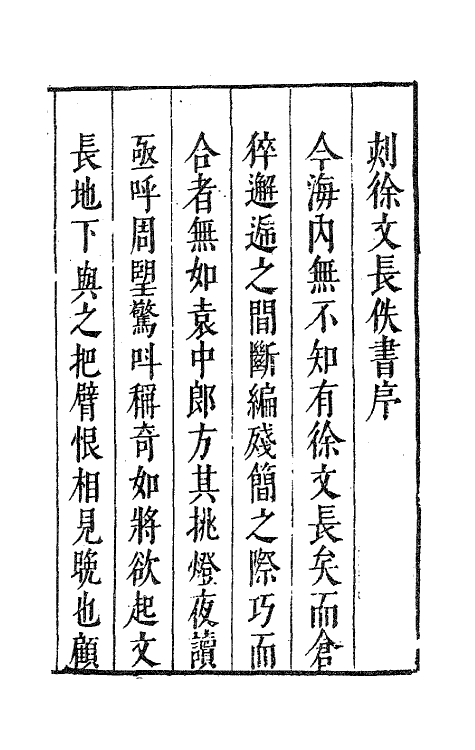 刺徐文長佚書序
今海內無不知有徐文長矣而倉
猝邂逅之間斷編殘簡之際巧而
合者無如袁中郎方其挑燈夜讀
亟呼周朢驚呌稱奇如將欲起文
長地下與之把臂恨相見晚也顧